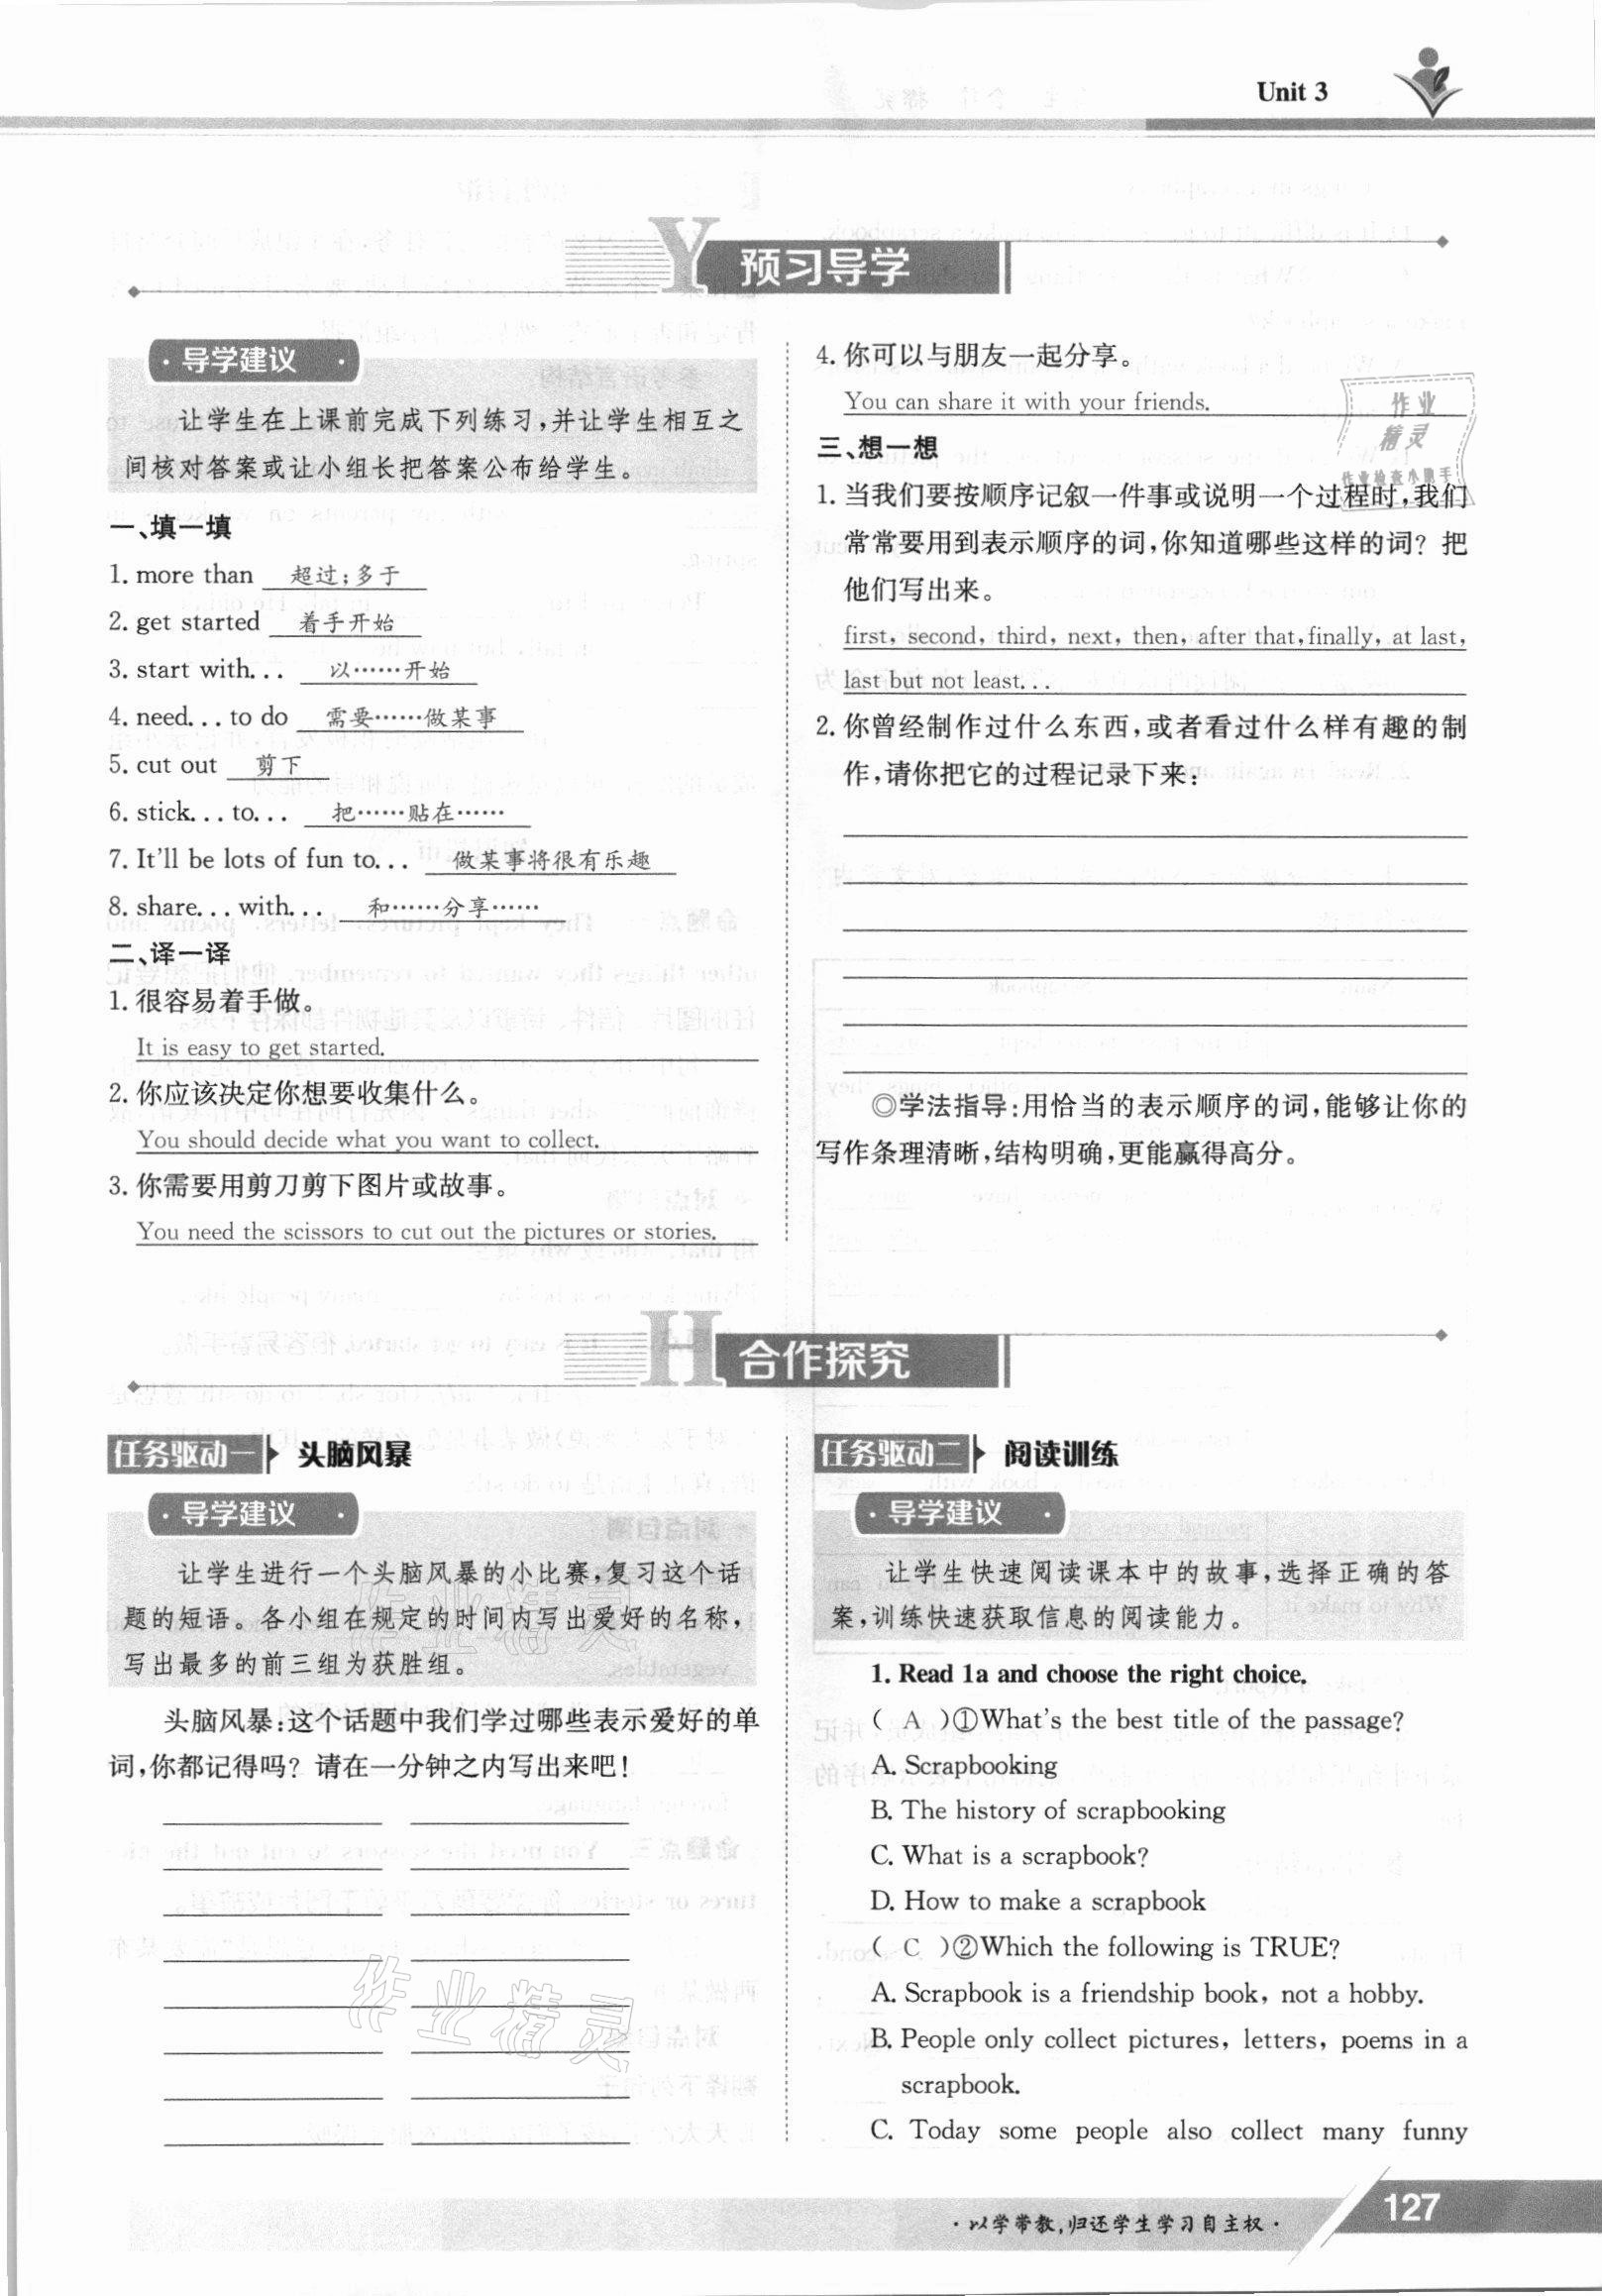 Unit 3
Y 预习导学
·导学建议·
让学生在上课前完成下列练习,并让学生相互之
间核对答案或让小组长把答案公布给学生。
一、填一填
1. more than 超过;多于
2. get started 着手开始
3. start with... 以……开始
4. need... to do 需要……做某事
5. cut out 剪下
6. stick... to... 把……贴在……
7. It'll be lots of fun to... 做某事将很有乐趣
8. share... with... 和……分享……
二、译一译
1. 很容易着手做。
It is easy to get started.
2. 你应该决定你想要收集什么。
You should decide what you want to collect.
3. 你需要用剪刀剪下图片或故事。
You need the scissors to cut out the pictures or stories.
4. 你可以与朋友一起分享。
You can share it with your friends.
作业
精灵
作业检查小助手
三、想一想
1. 当我们要按顺序记叙一件事或说明一个过程时,我们
常常要用到表示顺序的词,你知道哪些这样的词? 把
他们写出来。
first, second, third, next, then, after that, finally, at last,
last but not least...
2. 你曾经制作过什么东西,或者看过什么样有趣的制
作,请你把它的过程记录下来:
◎学法指导:用恰当的表示顺序的词,能够让你的
写作条理清晰,结构明确,更能赢得高分。
H 合作探究
任务驱动一 头脑风暴
·导学建议·
让学生进行一个头脑风暴的小比赛,复习这个话
题的短语。各小组在规定的时间内写出爱好的名称,
写出最多的前三组为获胜组。
头脑风暴:这个话题中我们学过哪些表示爱好的单
词,你都记得吗? 请在一分钟之内写出来吧!
作业精灵
作业精灵
任务驱动二 阅读训练
·导学建议·
让学生快速阅读课本中的故事,选择正确的答
案,训练快速获取信息的阅读能力。
1. Read 1a and choose the right choice.
( A )①What's the best title of the passage?
A. Scrapbooking
B. The history of scrapbooking
C. What is a scrapbook?
D. How to make a scrapbook
( C )②Which the following is TRUE?
A. Scrapbook is a friendship book, not a hobby.
B. People only collect pictures, letters, poems in a
scrapbook.
C. Today some people also collect many funny
·以学带教,归还学生学习自主权·
127